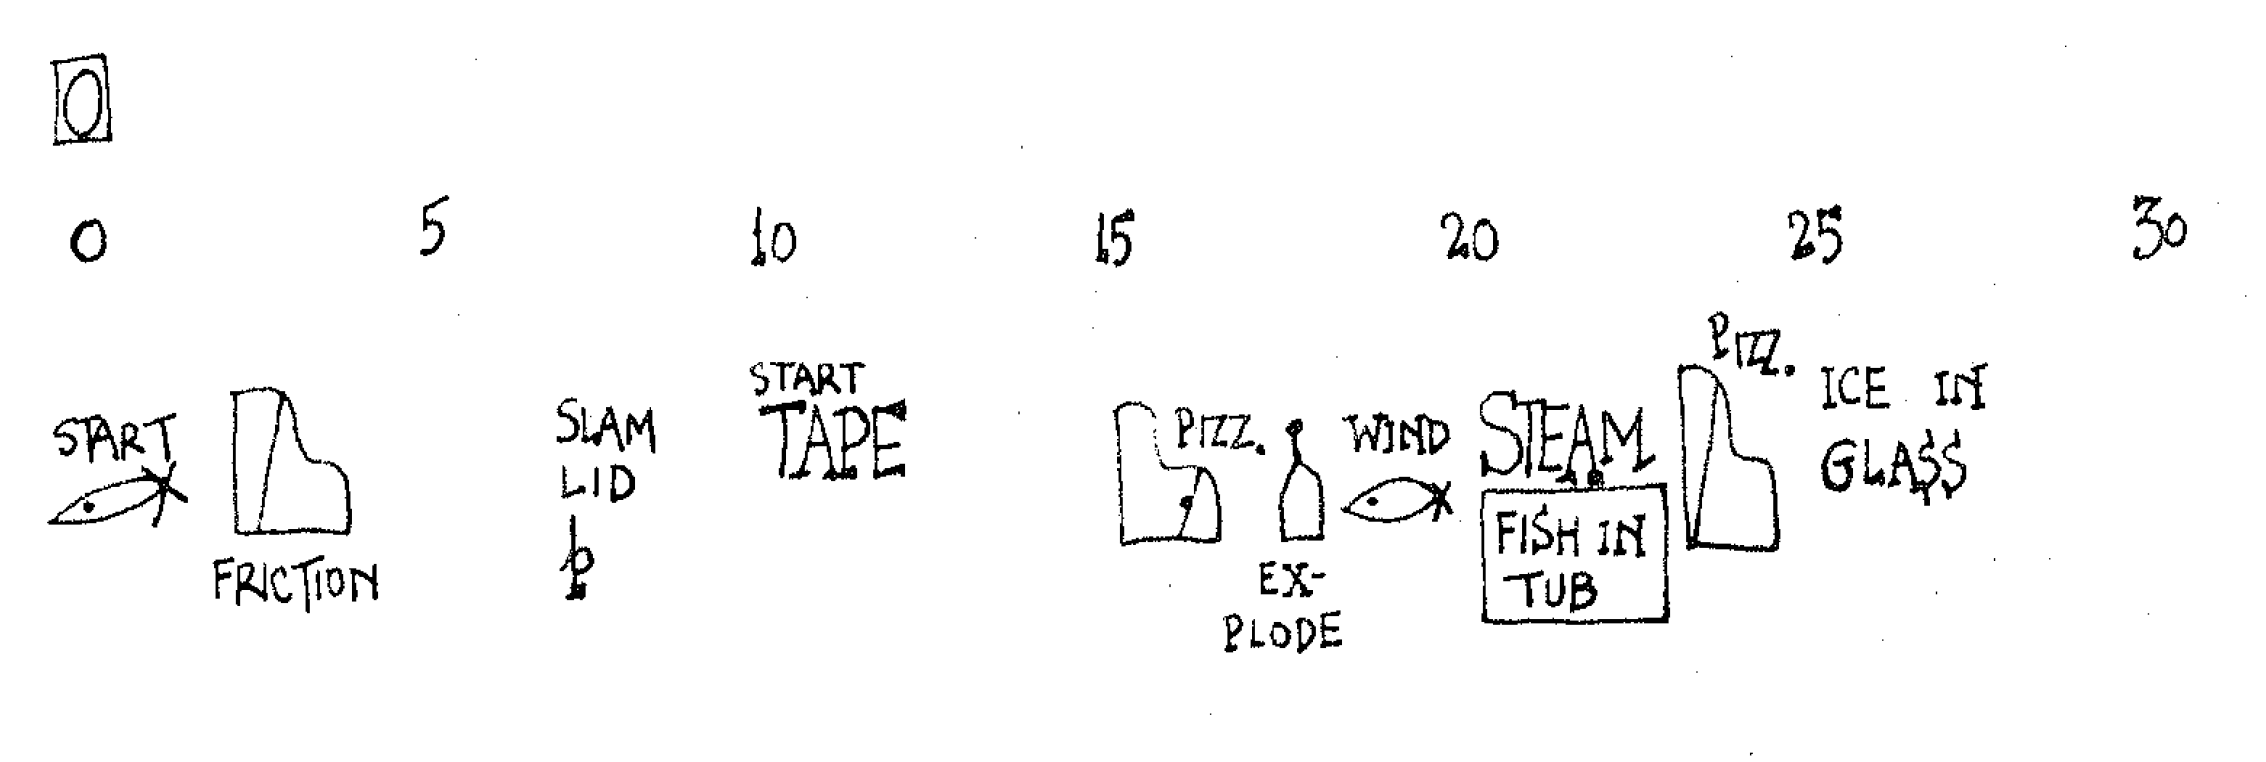 0
0 5 10 15 20 25 30
START
FRICTION
SLAM
LID
p
START
TAPE
PIZZ.
EX-
PLODE
WIND
STEAM
FISH IN
TUB
PIZZ.
ICE IN
GLASS